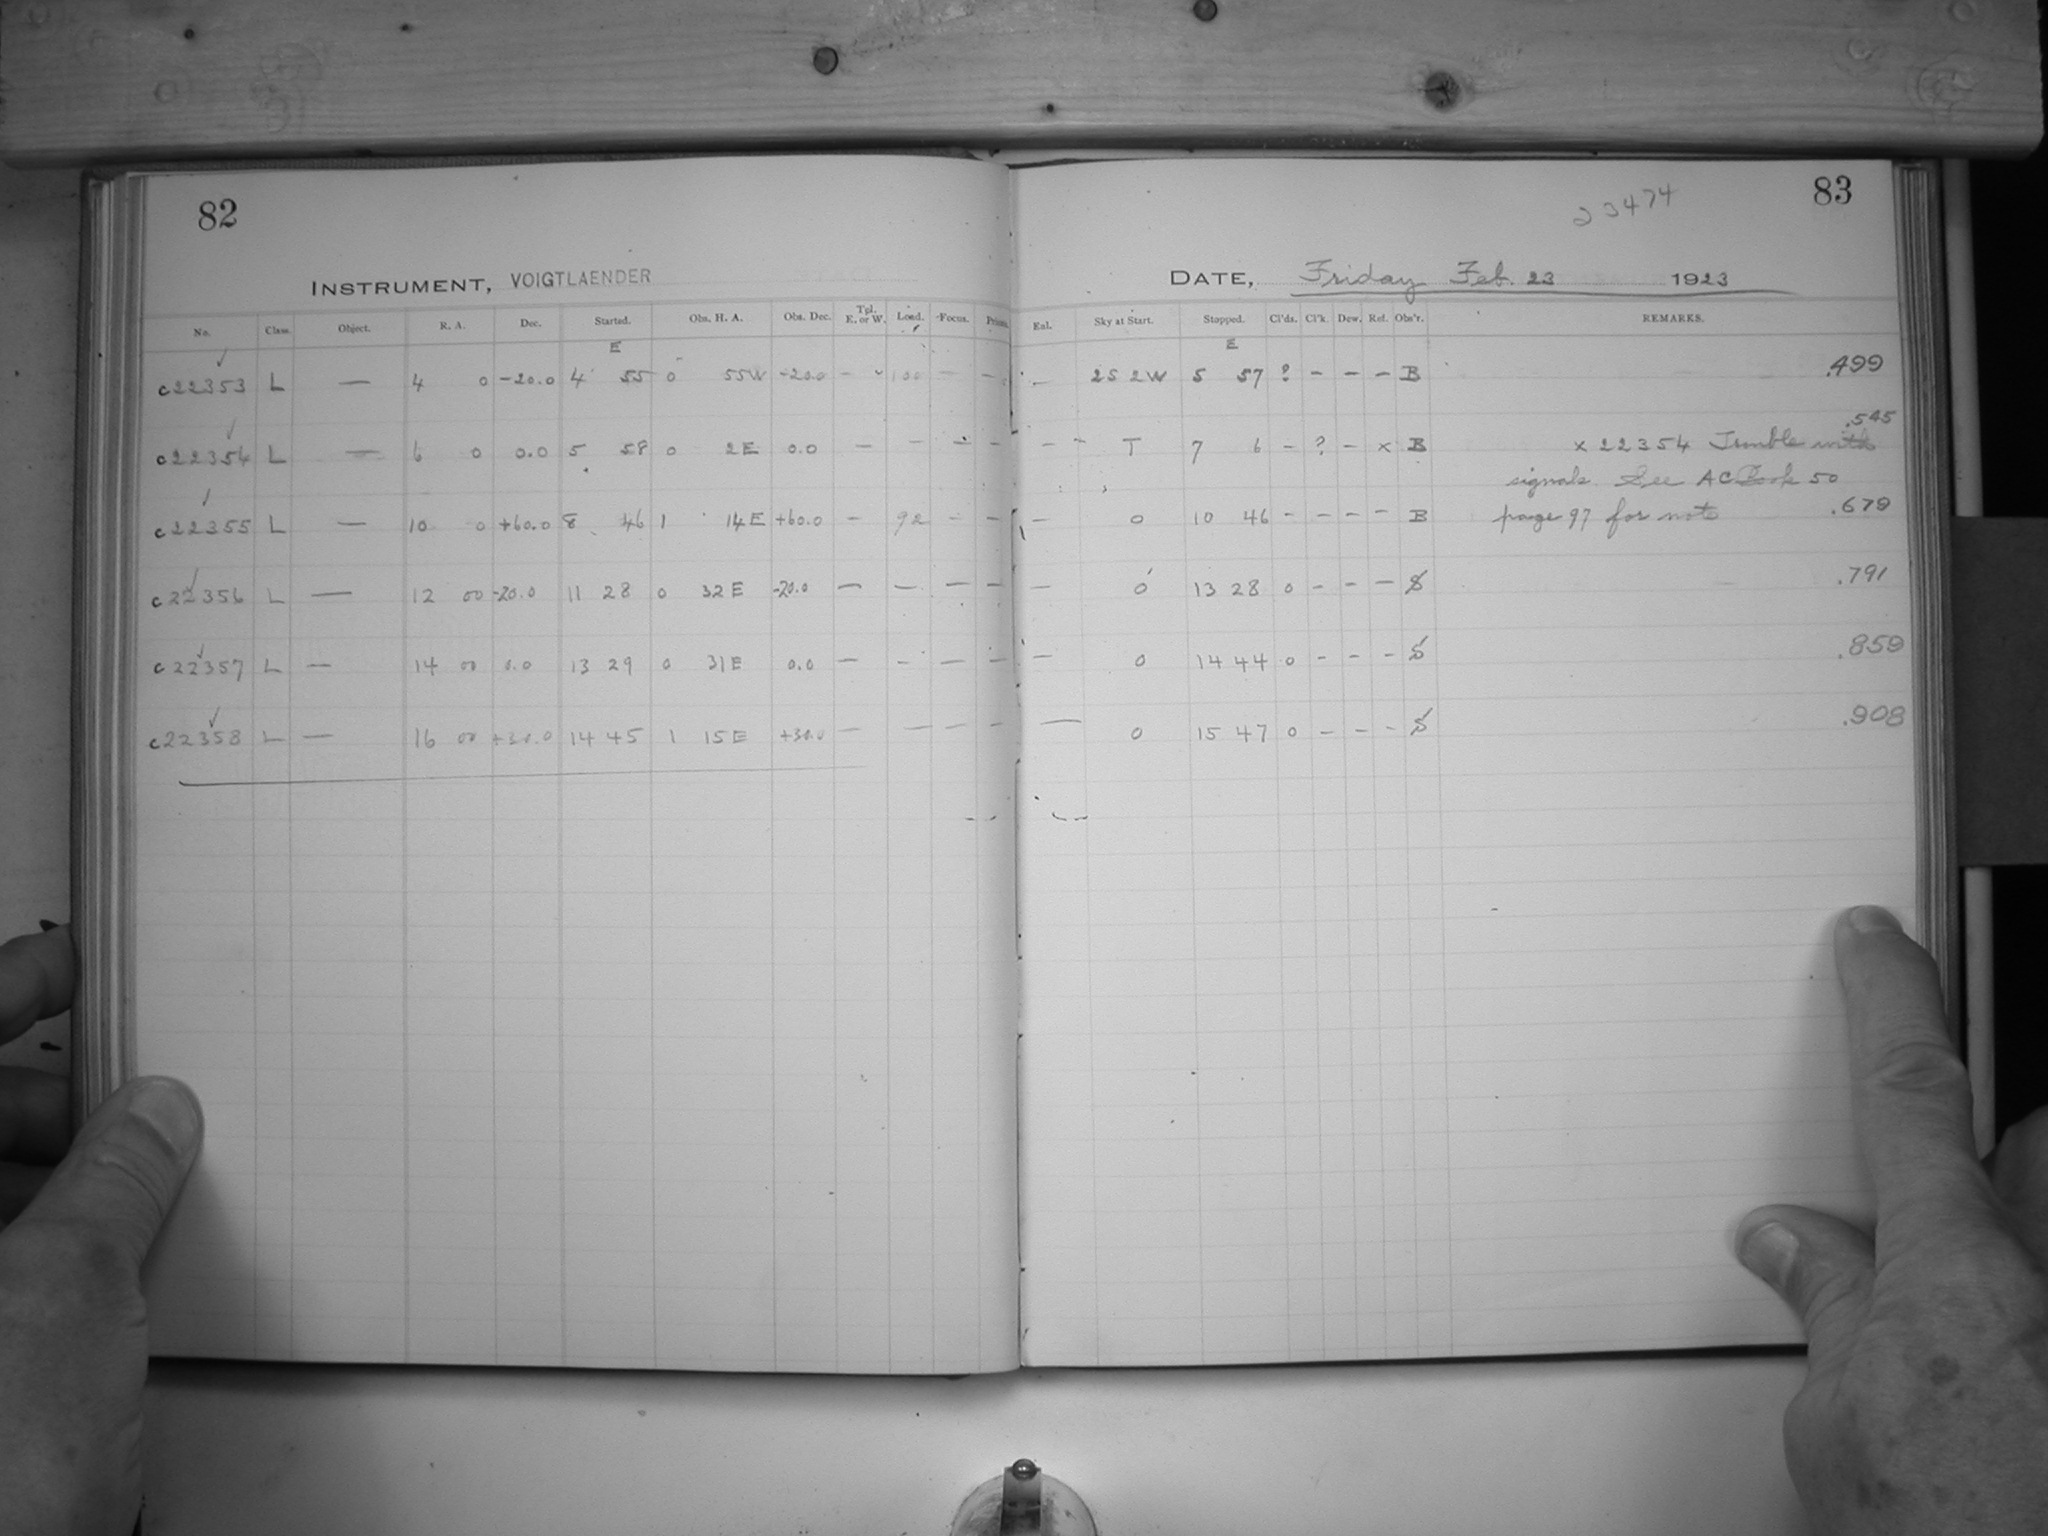 82
83
23474
INSTRUMENT, VOIGTLAENDER
DATE, Friday Feb. 23 1923
No. Class. Object. R. A. Dec. Started. Obs. H. A. Obs. Dec. Tgl. E. or W. Load. Focus. Prism. Eal. Sky at Start. Stopped. Cl'ds. Cl'k. Dew. Ref. Obs'r. REMARKS.
E E
c22353 L — 4 0 -20.0 4 55 0 55W -20.0 - 100 - - - 2S 2W 5 57 ? - - - B .499
c22354 L — 6 0 0.0 5 58 0 2E 0.0 - - - - - T 7 6 - ? - x B x 22354 with .545
signals. See AC Book 50
c22355 L — 10 0 +60.0 8 46 1 14E +60.0 - 92 - - - 0 10 46 - - - - B page 97 for note .679
c22356 L — 12 00 -20.0 11 28 0 32E -20.0 - - - - - 0 13 28 0 - - - S .791
c22357 L — 14 00 0.0 13 29 0 31E 0.0 - - - - - 0 14 44 0 - - - S .859
c22358 L — 16 00 +30.0 14 45 1 15E +30.0 - - - - — 0 15 47 0 - - - S .908